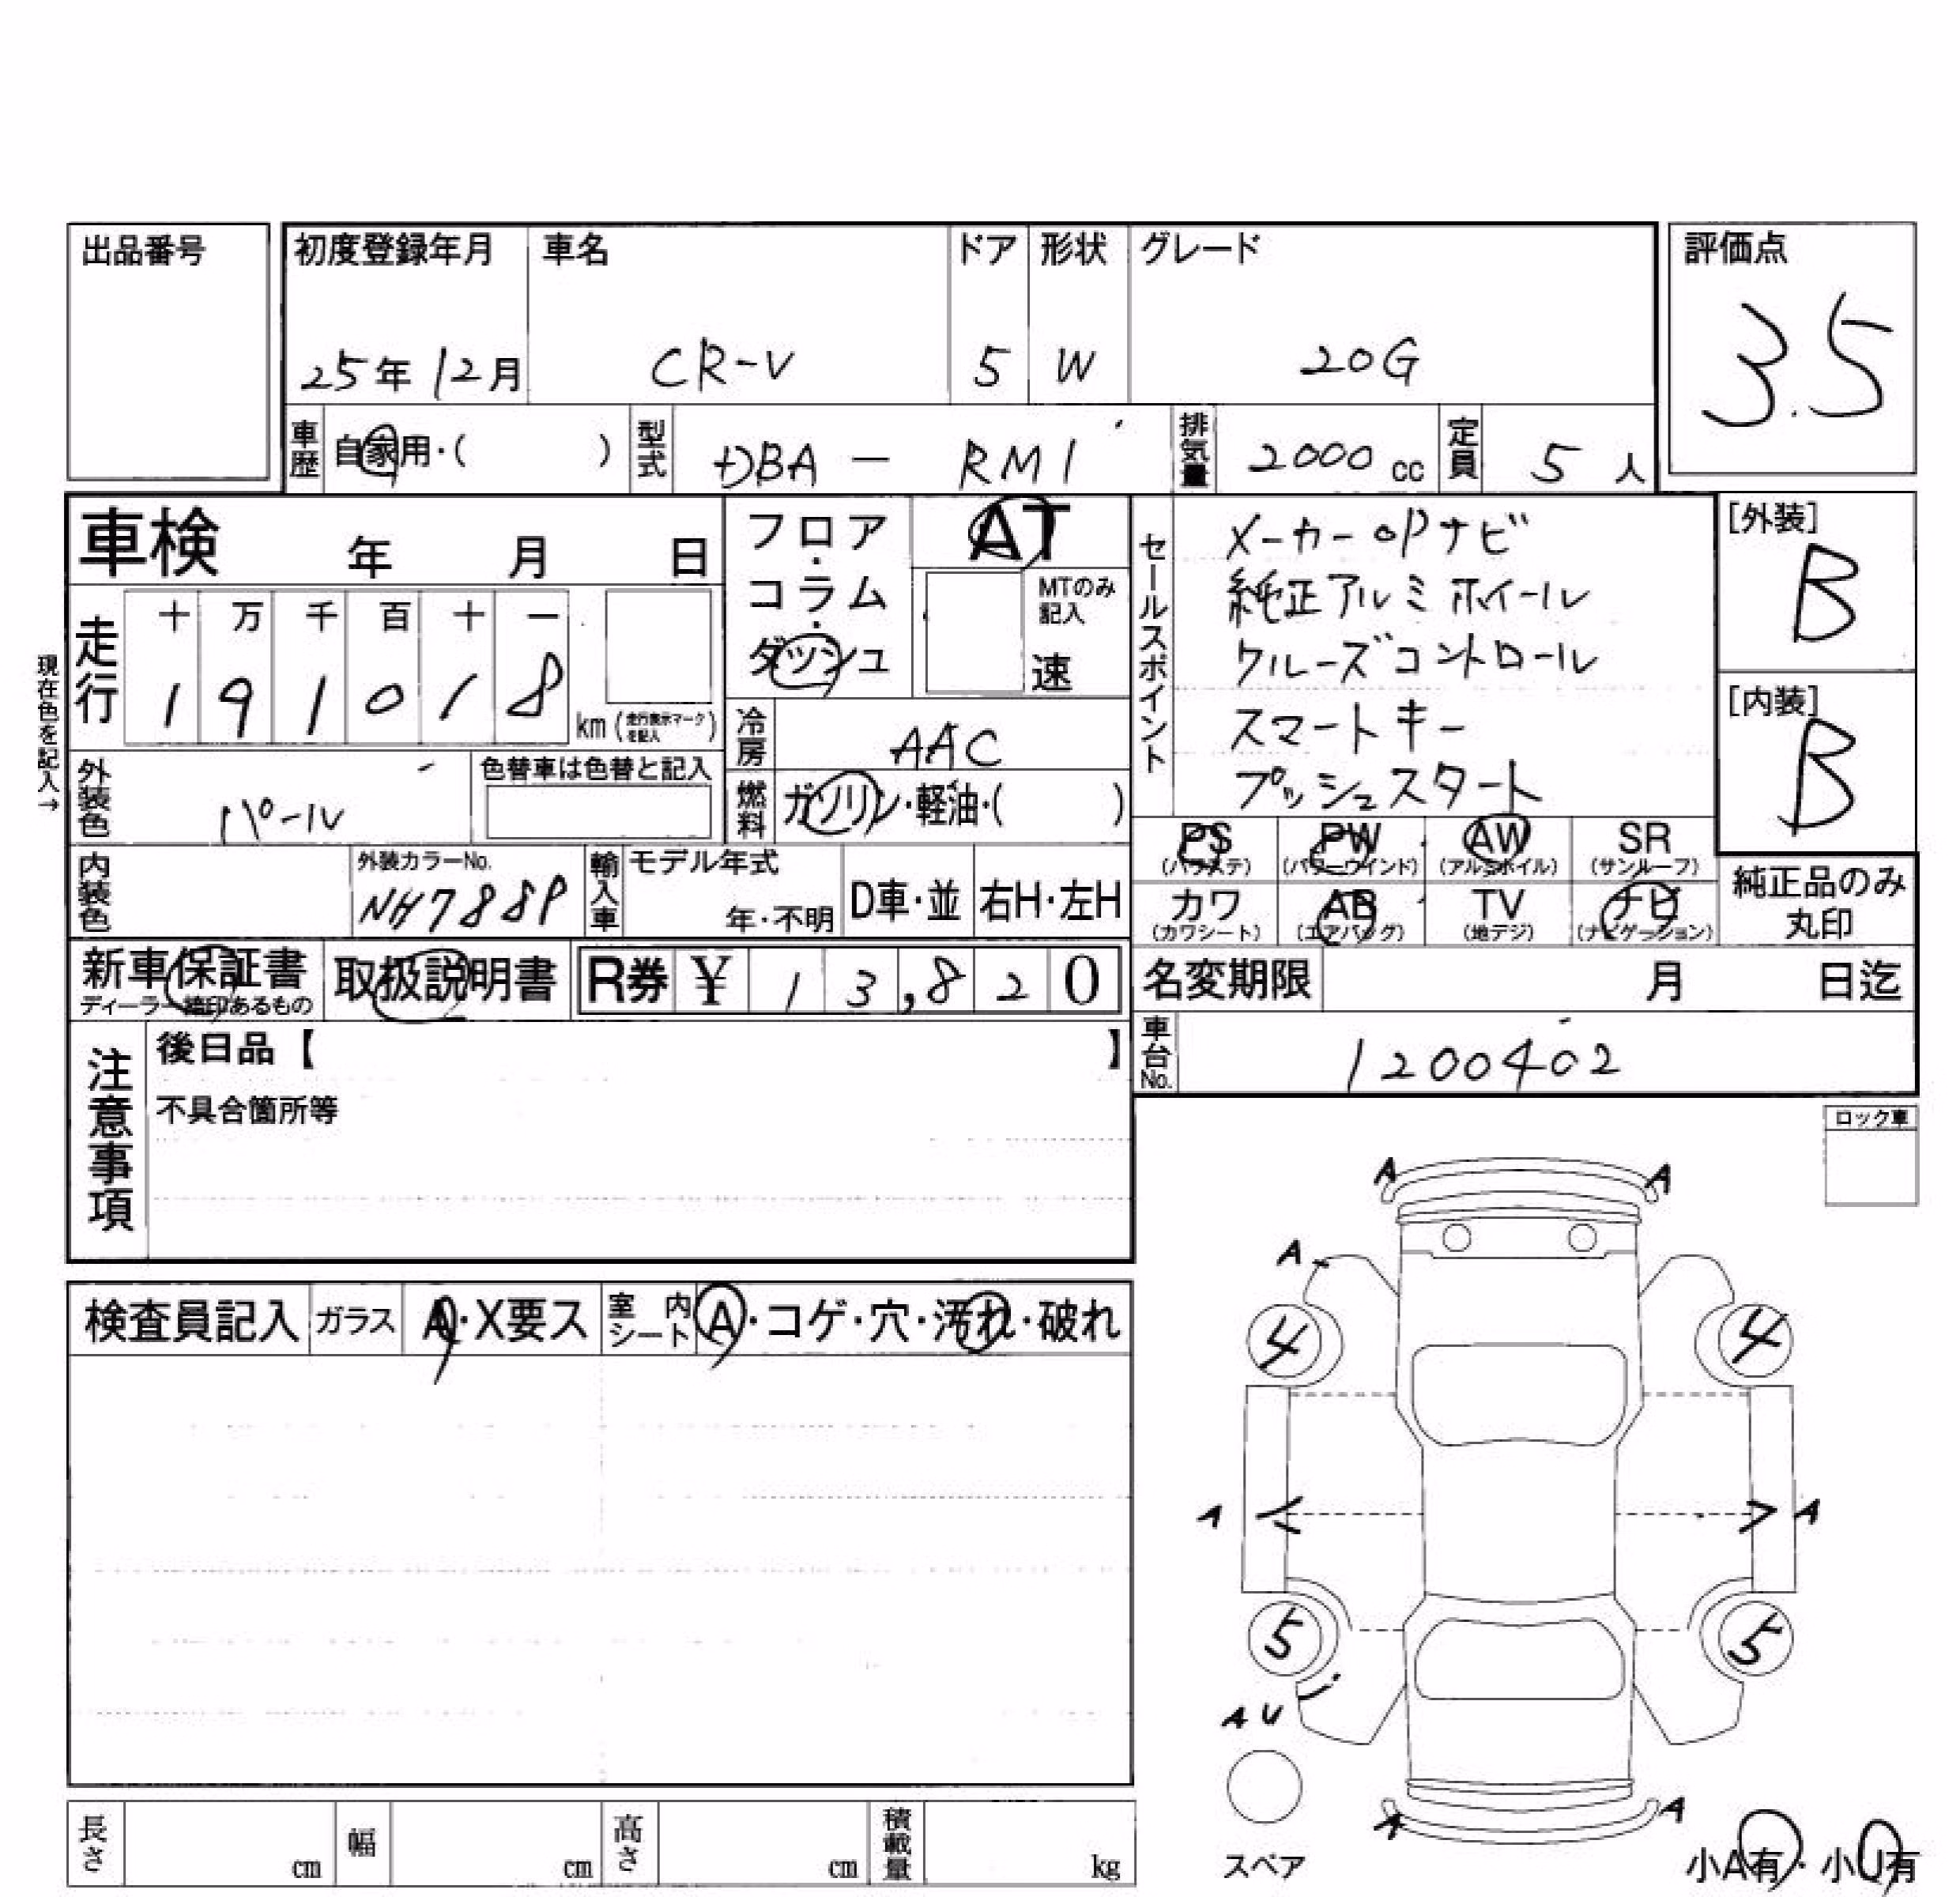 出品番号
初度登録年月 車名 ドア 形状 グレード 評価点
25年12月 CR-V 5 W 20G 3.5
車歴 自家用・( ) 型式 DBA - RM1 排気量 2000 cc 定員 5 人
車検 年 月 日
フロア・コラム・ダッシュ AT
MTのみ記入
速
セールスポイント
メーカーopナビ
純正アルミホイール
クルーズコントロール
スマートキー
プッシュスタート
[外装]
B
[内装]
B
現在色を記入→
走行 十 万 千 百 十 一
1 9 1 0 1 8 km (走行表示マークを記入)
冷房 AAC
外装色 パール 色替車は色替と記入
燃料 ガソリン・軽油・( )
PS (パワステ) PW (パワーウインド) AW (アルミホイル) SR (サンルーフ)
カワ (カワシート) AB (エアバッグ) TV (地デジ) ナビ (ナビゲーション)
純正品のみ丸印
内装色 外装カラーNo. NH788P 輸入車 モデル年式 年・不明 D車・並 右H・左H
新車保証書 ディーラー印あるもの 取扱説明書 R券 ¥ 1 3,8 2 0
名変期限 月 日迄
車台No. 1200402
注意事項
後日品【 】
不具合箇所等
ロック車
検査員記入 ガラス A・X要ス 室内シート A・コゲ・穴・汚れ・破れ
A A
A
4 4
A A
5 5
A U
A A
スペア
小A有・小U有
長さ cm 幅 cm 高さ cm 積載量 kg